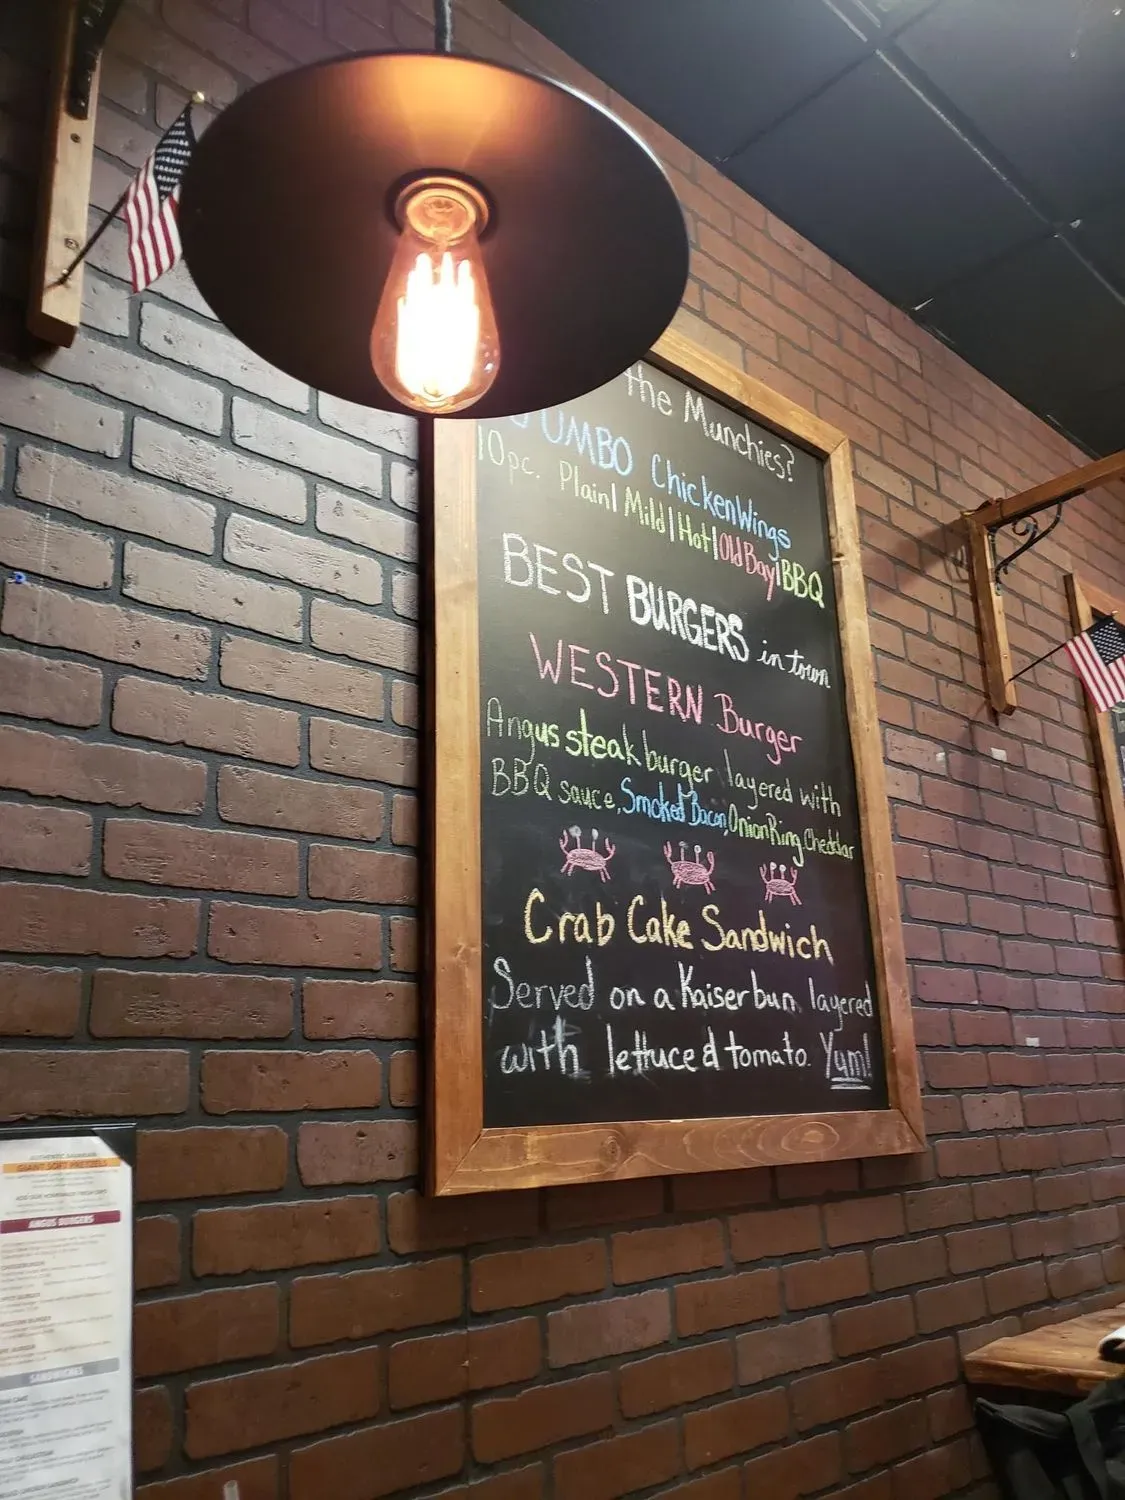 the Munchies?
JUMBO Chicken Wings
10pc. Plain | Mild | Hot | Old Bay | BBQ
BEST BURGERS in town
WESTERN Burger
Angus steak burger layered with
BBQ sauce, Smoked Bacon, Onion Ring, Cheddar
Crab Cake Sandwich
Served on a Kaiser bun layered
with lettuce d tomato. Yum!
GIANT SOFT PRETZELS
ANGUS BURGERS
SANDWICHES